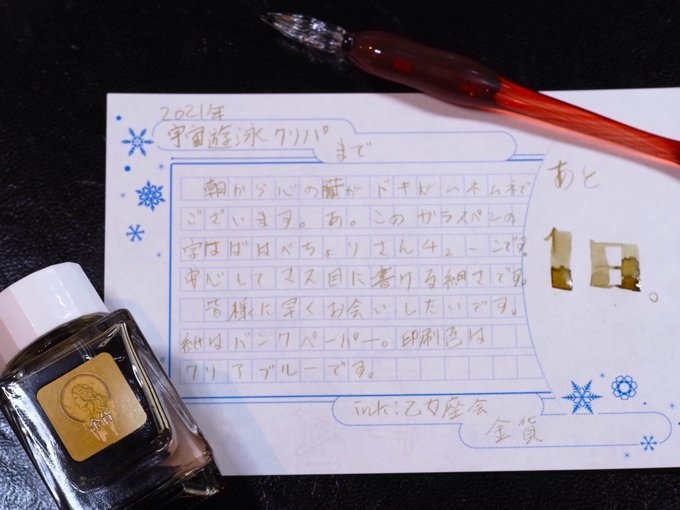 2021年
宇宙遊泳 クリパ
まで
あと
1日。
朝から心の臓が ドキドキムネムネで
ございます。あ。このガラスペンの
字はばはべちょりさん
安心してマス目に書ける細さです。
皆様に早くお会いしたいです。
紙はバンクペーパー。印刷色は
クリアブルーです。
ink:乙女座会
金貨
金貨